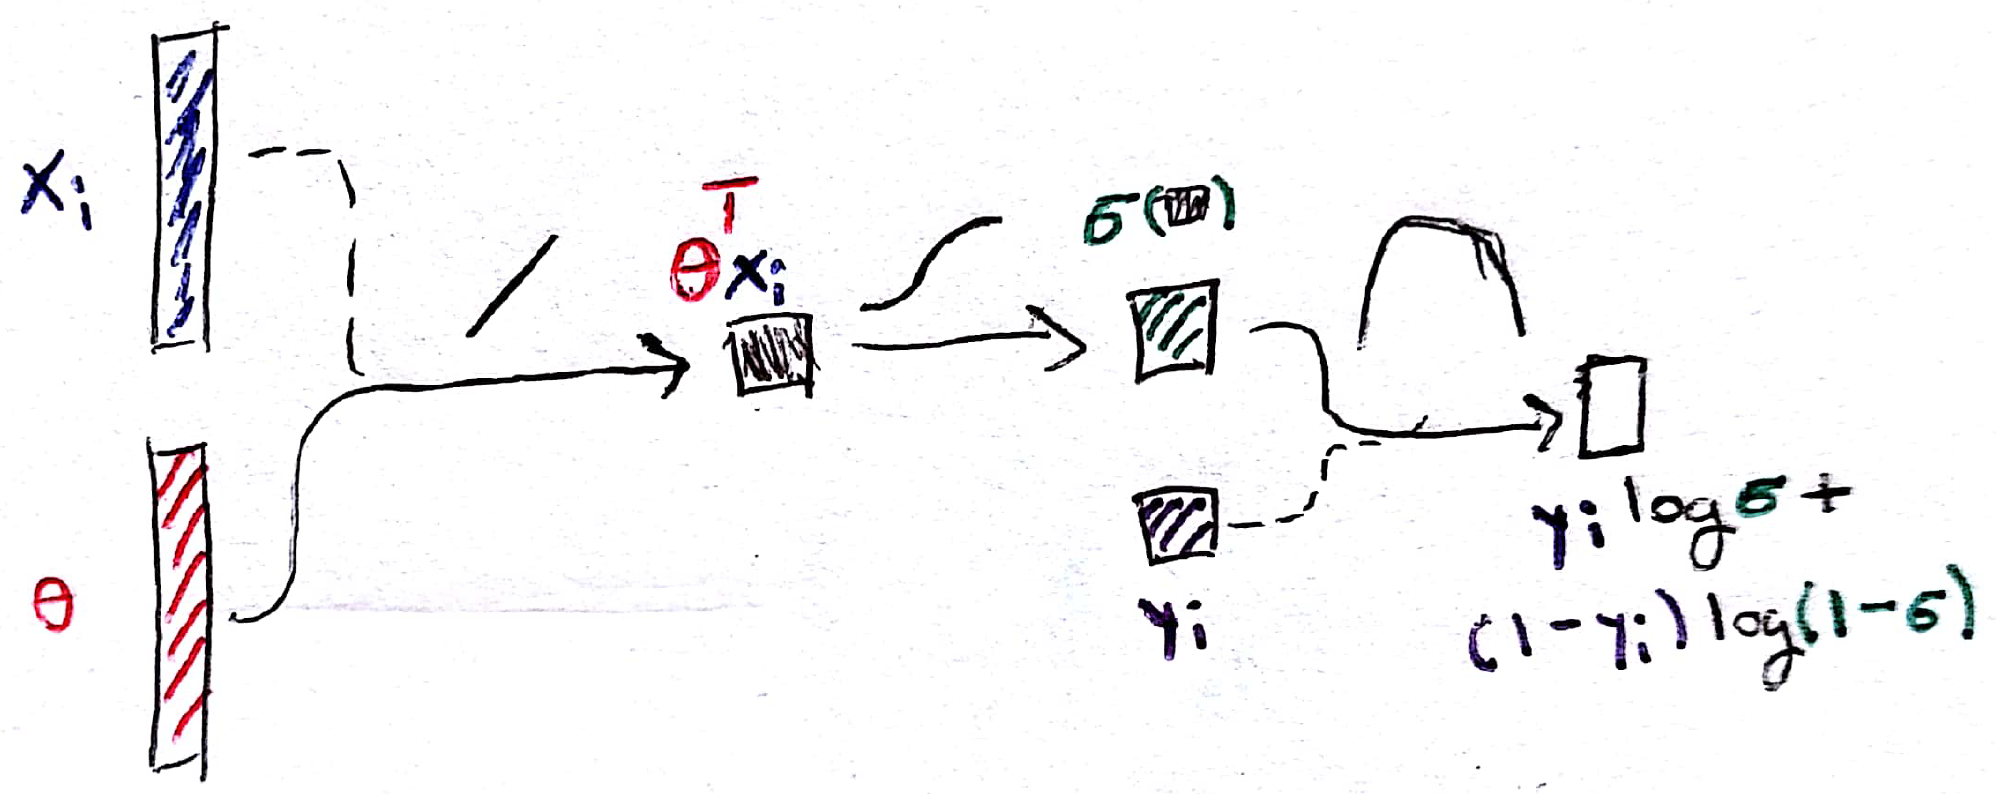 xᵢ
θ
θᵀxᵢ
σ(▨)
yᵢ
yᵢ log σ +
(1 - yᵢ) log(1 - σ)